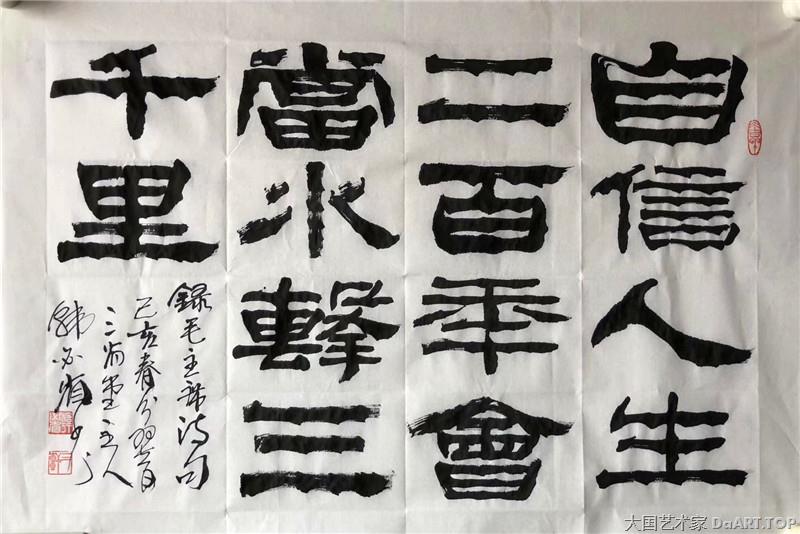 自信人生
二百年會
當水擊三
千里
錄毛主席詩句
己亥春分翌日
三省堂主人
大国艺术家 DaART.TOP